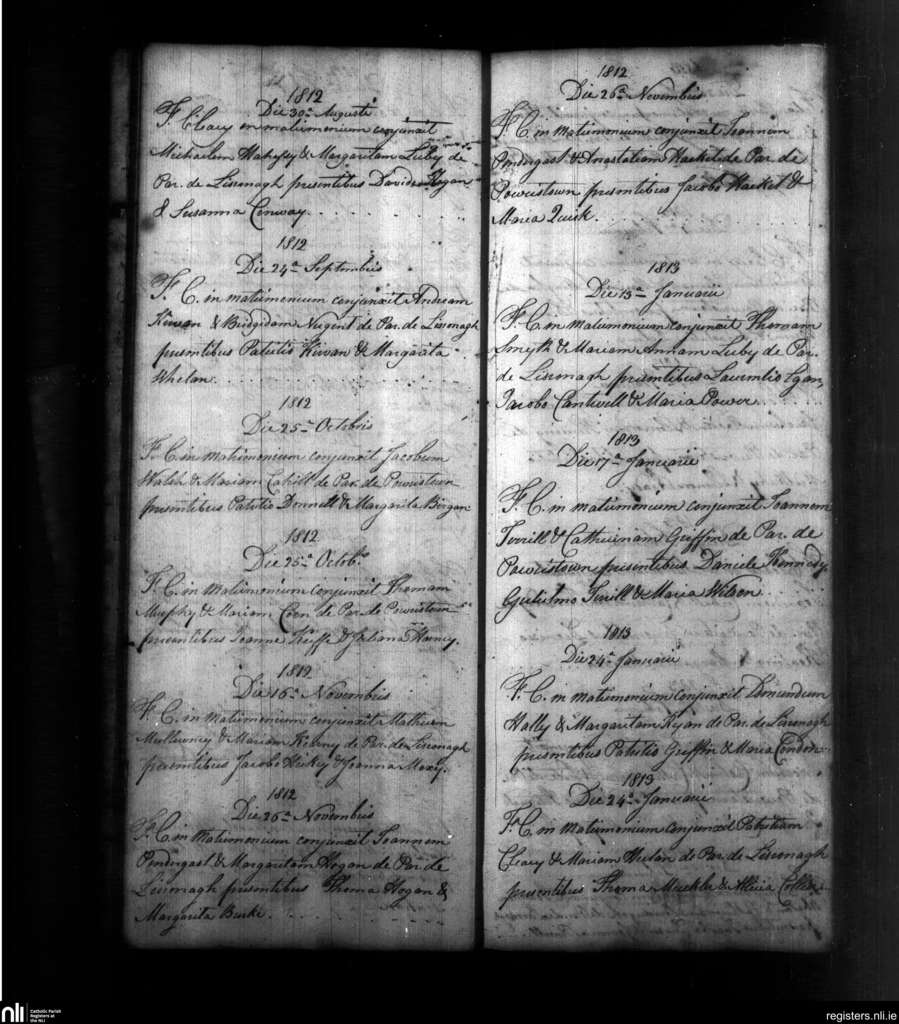 1812
Die 30a Augusti
F. Cleary in matrimonium conjunxit
Michaelem Mahyky & Margaritam Luby de
Par. de Lisronagh presentibus Davide Hogan
& Susanna Conway
1812
Die 24a Septembris
F. C. in matrimonium conjunxit Andream
Kirwan & Bridgidam Nugent de Par. de Lisronagh
presentibus Patritio Kirvan & Margarita
Whelan
1812
Die 25a Octobris
F. C. in matrimonium conjunxit Jacobum
Walsh & Mariam Cahill de Par. de Powerstown
presentibus Patritio Donnell & Margarita Bergan
1812
Die 25a Octobs
F. C. in matrimonium conjunxit Thomam
Murphy & Mariam Coen de Par. de Powerstown
presentibus Joanne Keiffe & Juliana Harney.
1812
Die 16a Novembris
F. C. in matrimonium conjunxit Matheum
Mullowney & Mariam Kearny de Par. de Lisronagh
presentibus Jacobo Hicky & Joanna Mary.
1812
Die 26a Novembris
F. C. in matrimonium conjunxit Joannem
Pendergast & Margaritam Hogan de Par. de
Lisronagh presentibus Thoma Hogan &
Margarita Burke
1812
Die 26a Novembris
F. C. in matrimonium conjunxit Joannem
Pendergast & Anastatiam Hacket de Par. de
Powerstown presentibus Jacobo Hacket &
Maria Quirk
1813
Die 13a Januarii
F. C. in matrimonium conjunxit Thomam
Smyth & Mariam Annam Luby de Par.
de Lisronagh presentibus Laurentio Egan,
Jacobo Cantwell & Maria Power
1813
Die 17a Januarii
F. C. in matrimonium conjunxit Joannem
Terrill & Catherinam Griffin de Par. de
Powerstown presentibus Daniele Kennedy
Gulielmo Terrill & Maria Wilson
1813
Die 24a Januarii
F. C. in matrimonium conjunxit Edmundum
Hally & Margaritam Ryan de Par. de Lisronagh
presentibus Patritio Griffin & Maria Condon
1813
Die 24a Januarii
F. C. in matrimonium conjunxit Patritium
Cleary & Mariam Whelan de Par. de Lisronagh
presentibus Thoma Mackle & Alicia Collins
nli
Catholic Parish
Registers at
the NLI
registers.nli.ie